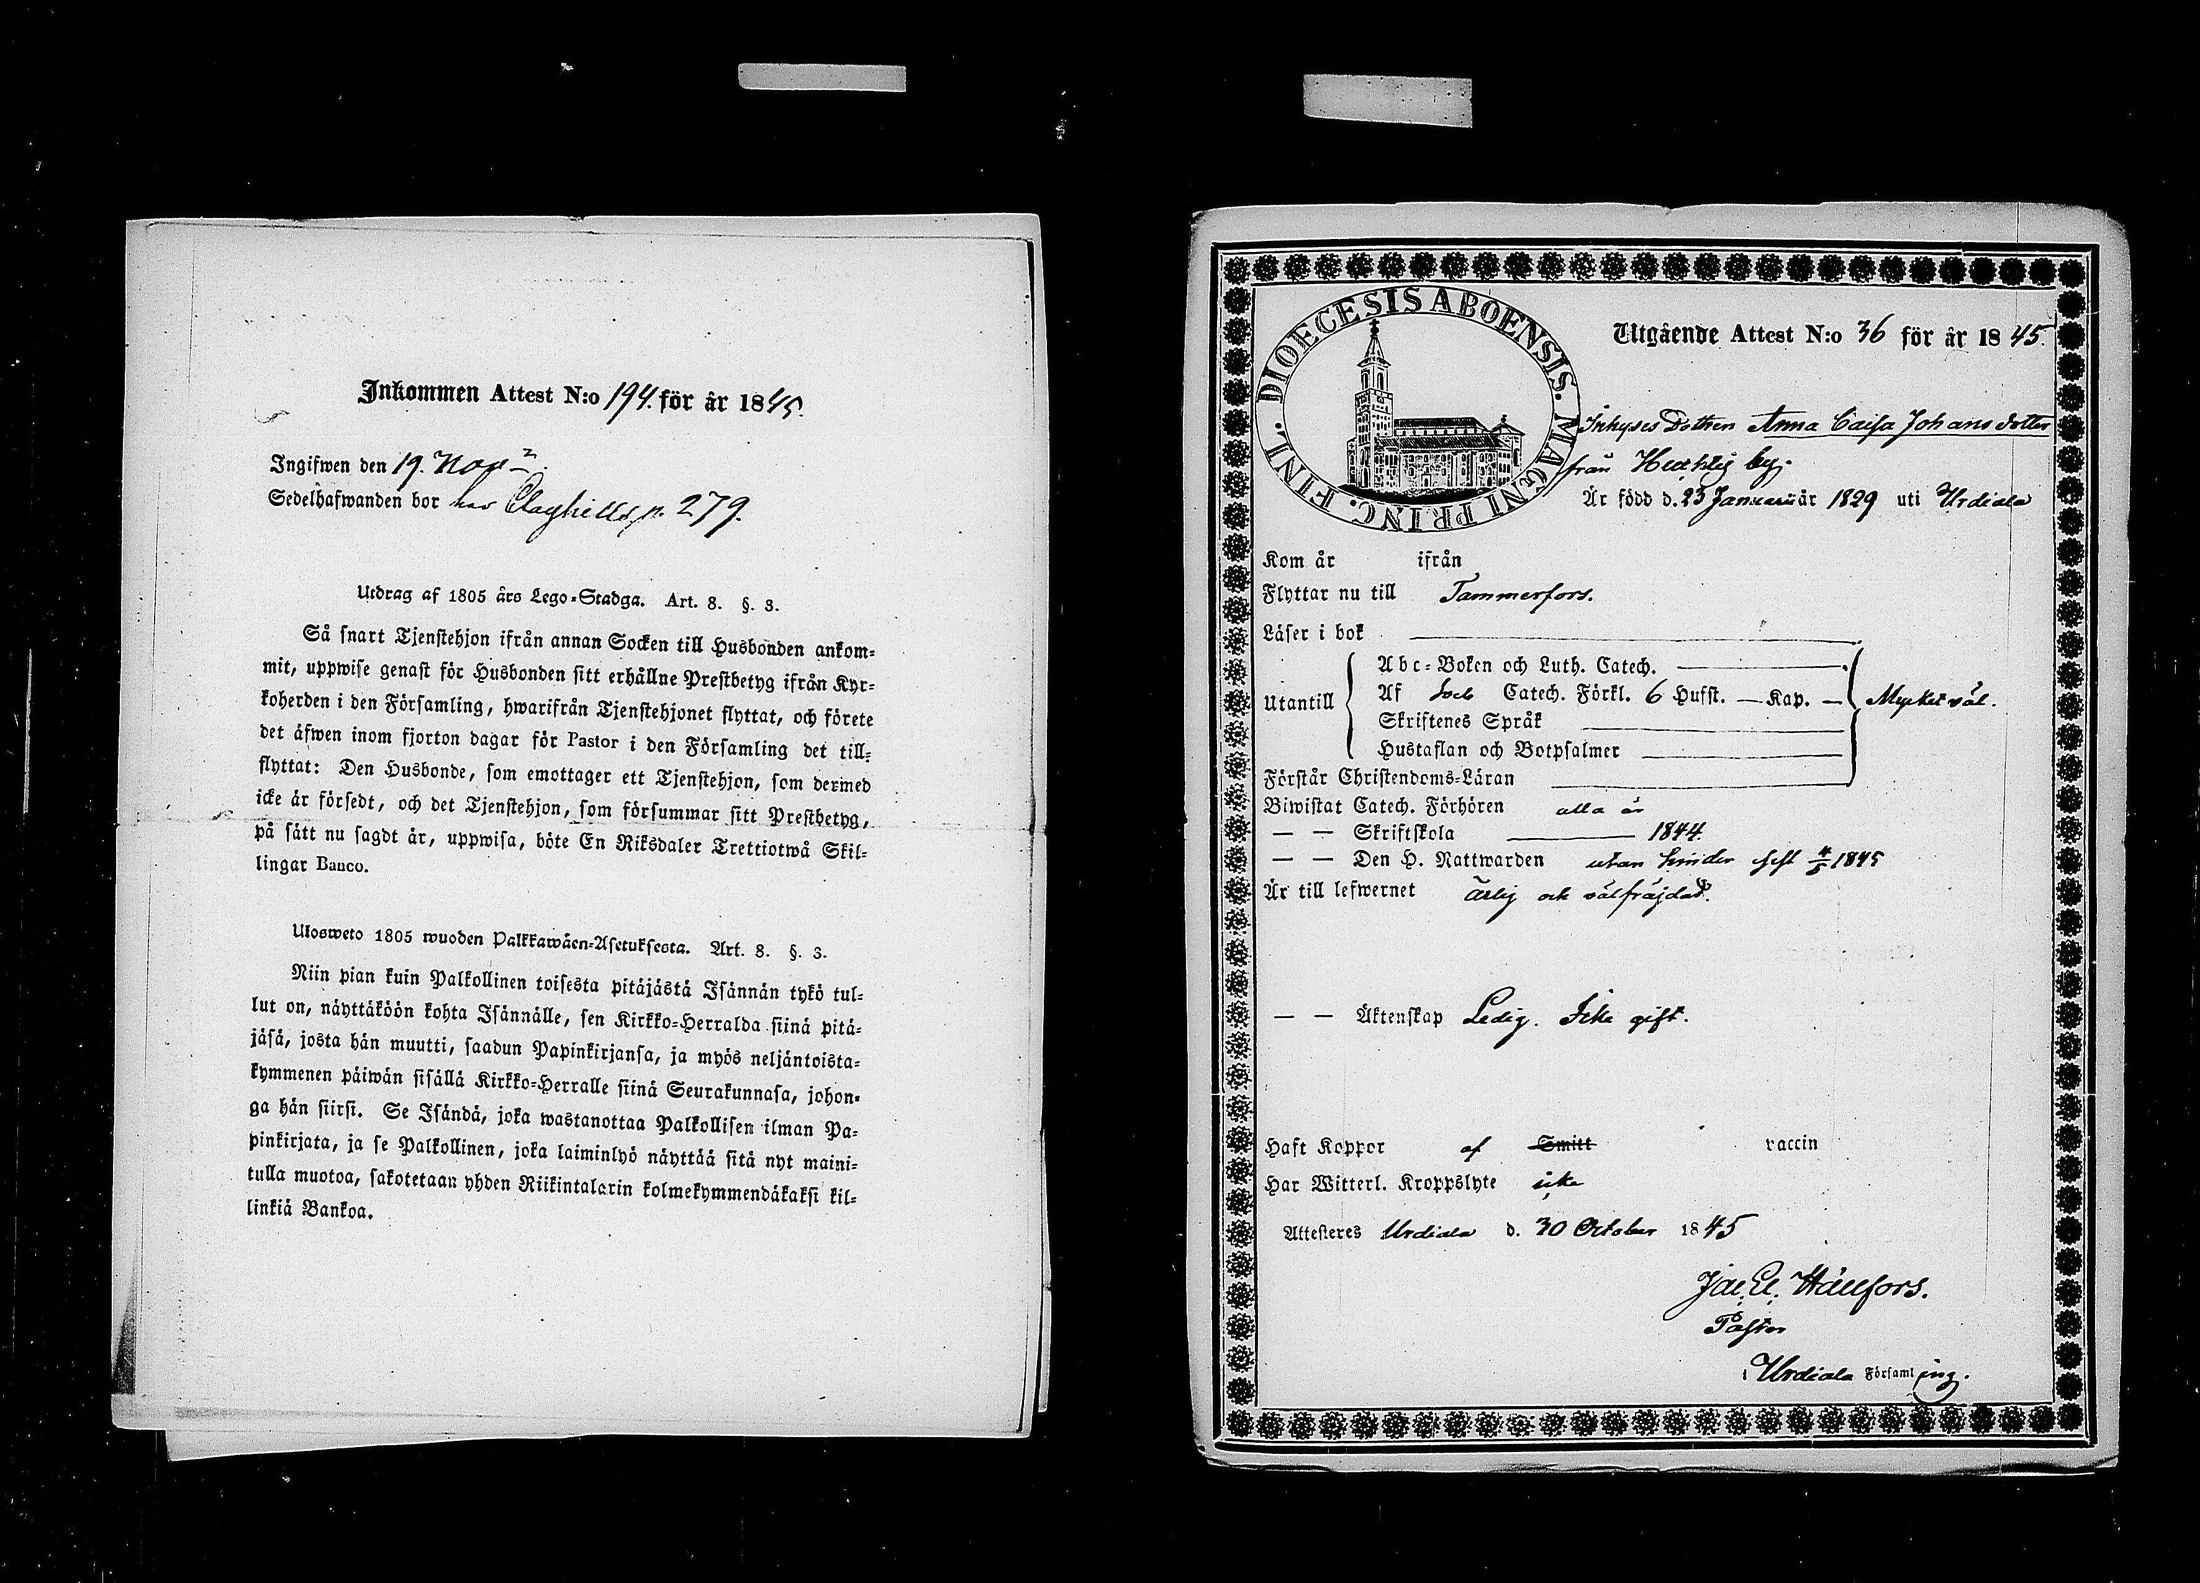 Inkommen Attest N:o 194. för år 1845.
Ingifwen den 19. Nov
Sedelhafwanden bor hos p. 279.
Utdrag af 1805 års Lego-Stadga. Art. 8. §. 3.
Så snart Tjenstehjon ifrån annan Socken till Husbonden ankom-
mit, uppwise genast för Husbonden sitt erhållne Prestbetyg ifrån Kyr-
koherden i den Församling, hwarifrån Tjenstehjonet flyttat, och förete
det äfwen inom fjorton dagar för Pastor i den Församling det till-
flyttat: Den Husbonde, som emottager ett Tjenstehjon, som dermed
icke är försedt, och det Tjenstehjon, som försummar sitt Prestbetyg,
på sätt nu sagdt är, uppwisa, böte En Riksdaler Trettiotwå Skil-
lingar Banco.
Ulosweto 1805 wuoden Palkkawäen-Asetuksesta. Art. 8. §. 3.
Niin pian kuin Palkollinen toisesta pitäjästä Isännän tykö tul-
lut on, näyttäköön kohta Isännälle, sen Kirkko-Herralda siinä pitä-
jäsä, josta hän muutti, saadun Papinkirjansa, ja myös neljäntoista-
kymmenen päiwän sisällä Kirkko-Herralle siinä Seurakunnasa, johon-
ga hän siirsi. Se Isändä, joka wastanottaa Palkollisen ilman Pa-
pinkirjata, ja se Palkollinen, joka laiminlyö näyttää sitä nyt maini-
tulla muotoa, sakotetaan yhden Riikintalarin kolmekymmendäkaksi kil-
linkiä Bankoa.
DIOECESIS ABOENSIS. MAGNI PRINC. FINL.
Utgående Attest N:o 36 för år 1845.
Inhyses Dottren Anna Caisa Johansdotter
från by.
Är född d. 23 Januarii år 1829 uti Urdiala
Kom år ifrån
Flyttar nu till Tammerfors.
Läser i bok
Utantill
Abc-Boken och Luth. Catech.
Af Sveb Catech. Förkl. 6 Hufst. — Kap. — Mycket väl.
Skriftenes Språk
Hustaflan och Botpsalmer
Förstår Christendoms-Läran
Biwistat Catech. Förhören alla år
— — Skriftskola 1844.
— — Den H. Nattwarden utan hinder sist 4/5 1845
Är till lefwernet ärlig och välfräjdad.
— — Äktenskap Ledig. Icke gift.
Haft Koppor af Smitt vaccin
Har Witterl. Kroppslyte icke
Attesteres Urdiala d. 30 October 1845
Pastor
i Urdiala Församling.